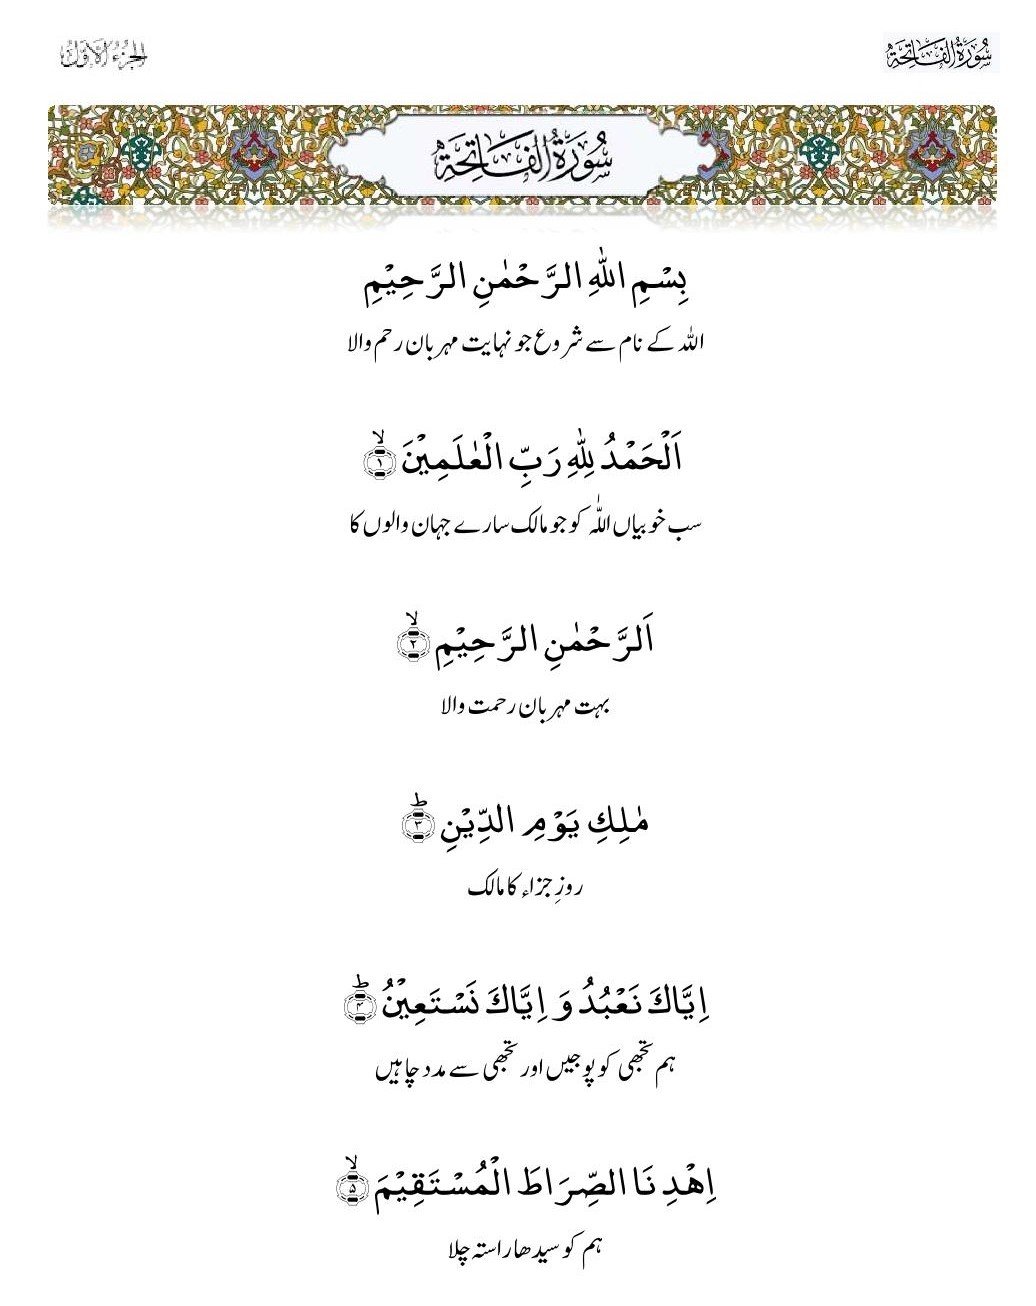 سُوْرَةُ الْفَاتِحَةِ
الجزء الاول
سُوْرَةُ الْفَاتِحَةِ
بِسْمِ اللّٰهِ الرَّحْمٰنِ الرَّحِیْمِ
اللہ کے نام سے شروع جو نہایت مہربان رحم والا
اَلْحَمْدُ لِلّٰهِ رَبِّ الْعٰلَمِیْنَ ۙ۱
سب خوبیاں اللّٰہ کو جو مالک سارے جہان والوں کا
اَلرَّحْمٰنِ الرَّحِیْمِ ۙ۲
بہت مہربان رحمت والا
مٰلِكِ یَوْمِ الدِّیْنِ ؕ۳
روزِ جزاء کا مالک
اِیَّاكَ نَعْبُدُ وَ اِیَّاكَ نَسْتَعِیْنُ ؕ۴
ہم تجھی کو پوجیں اور تجھی سے مدد چاہیں
اِهْدِنَا الصِّرَاطَ الْمُسْتَقِیْمَ ۙ۵
ہم کو سیدھا راستہ چلا